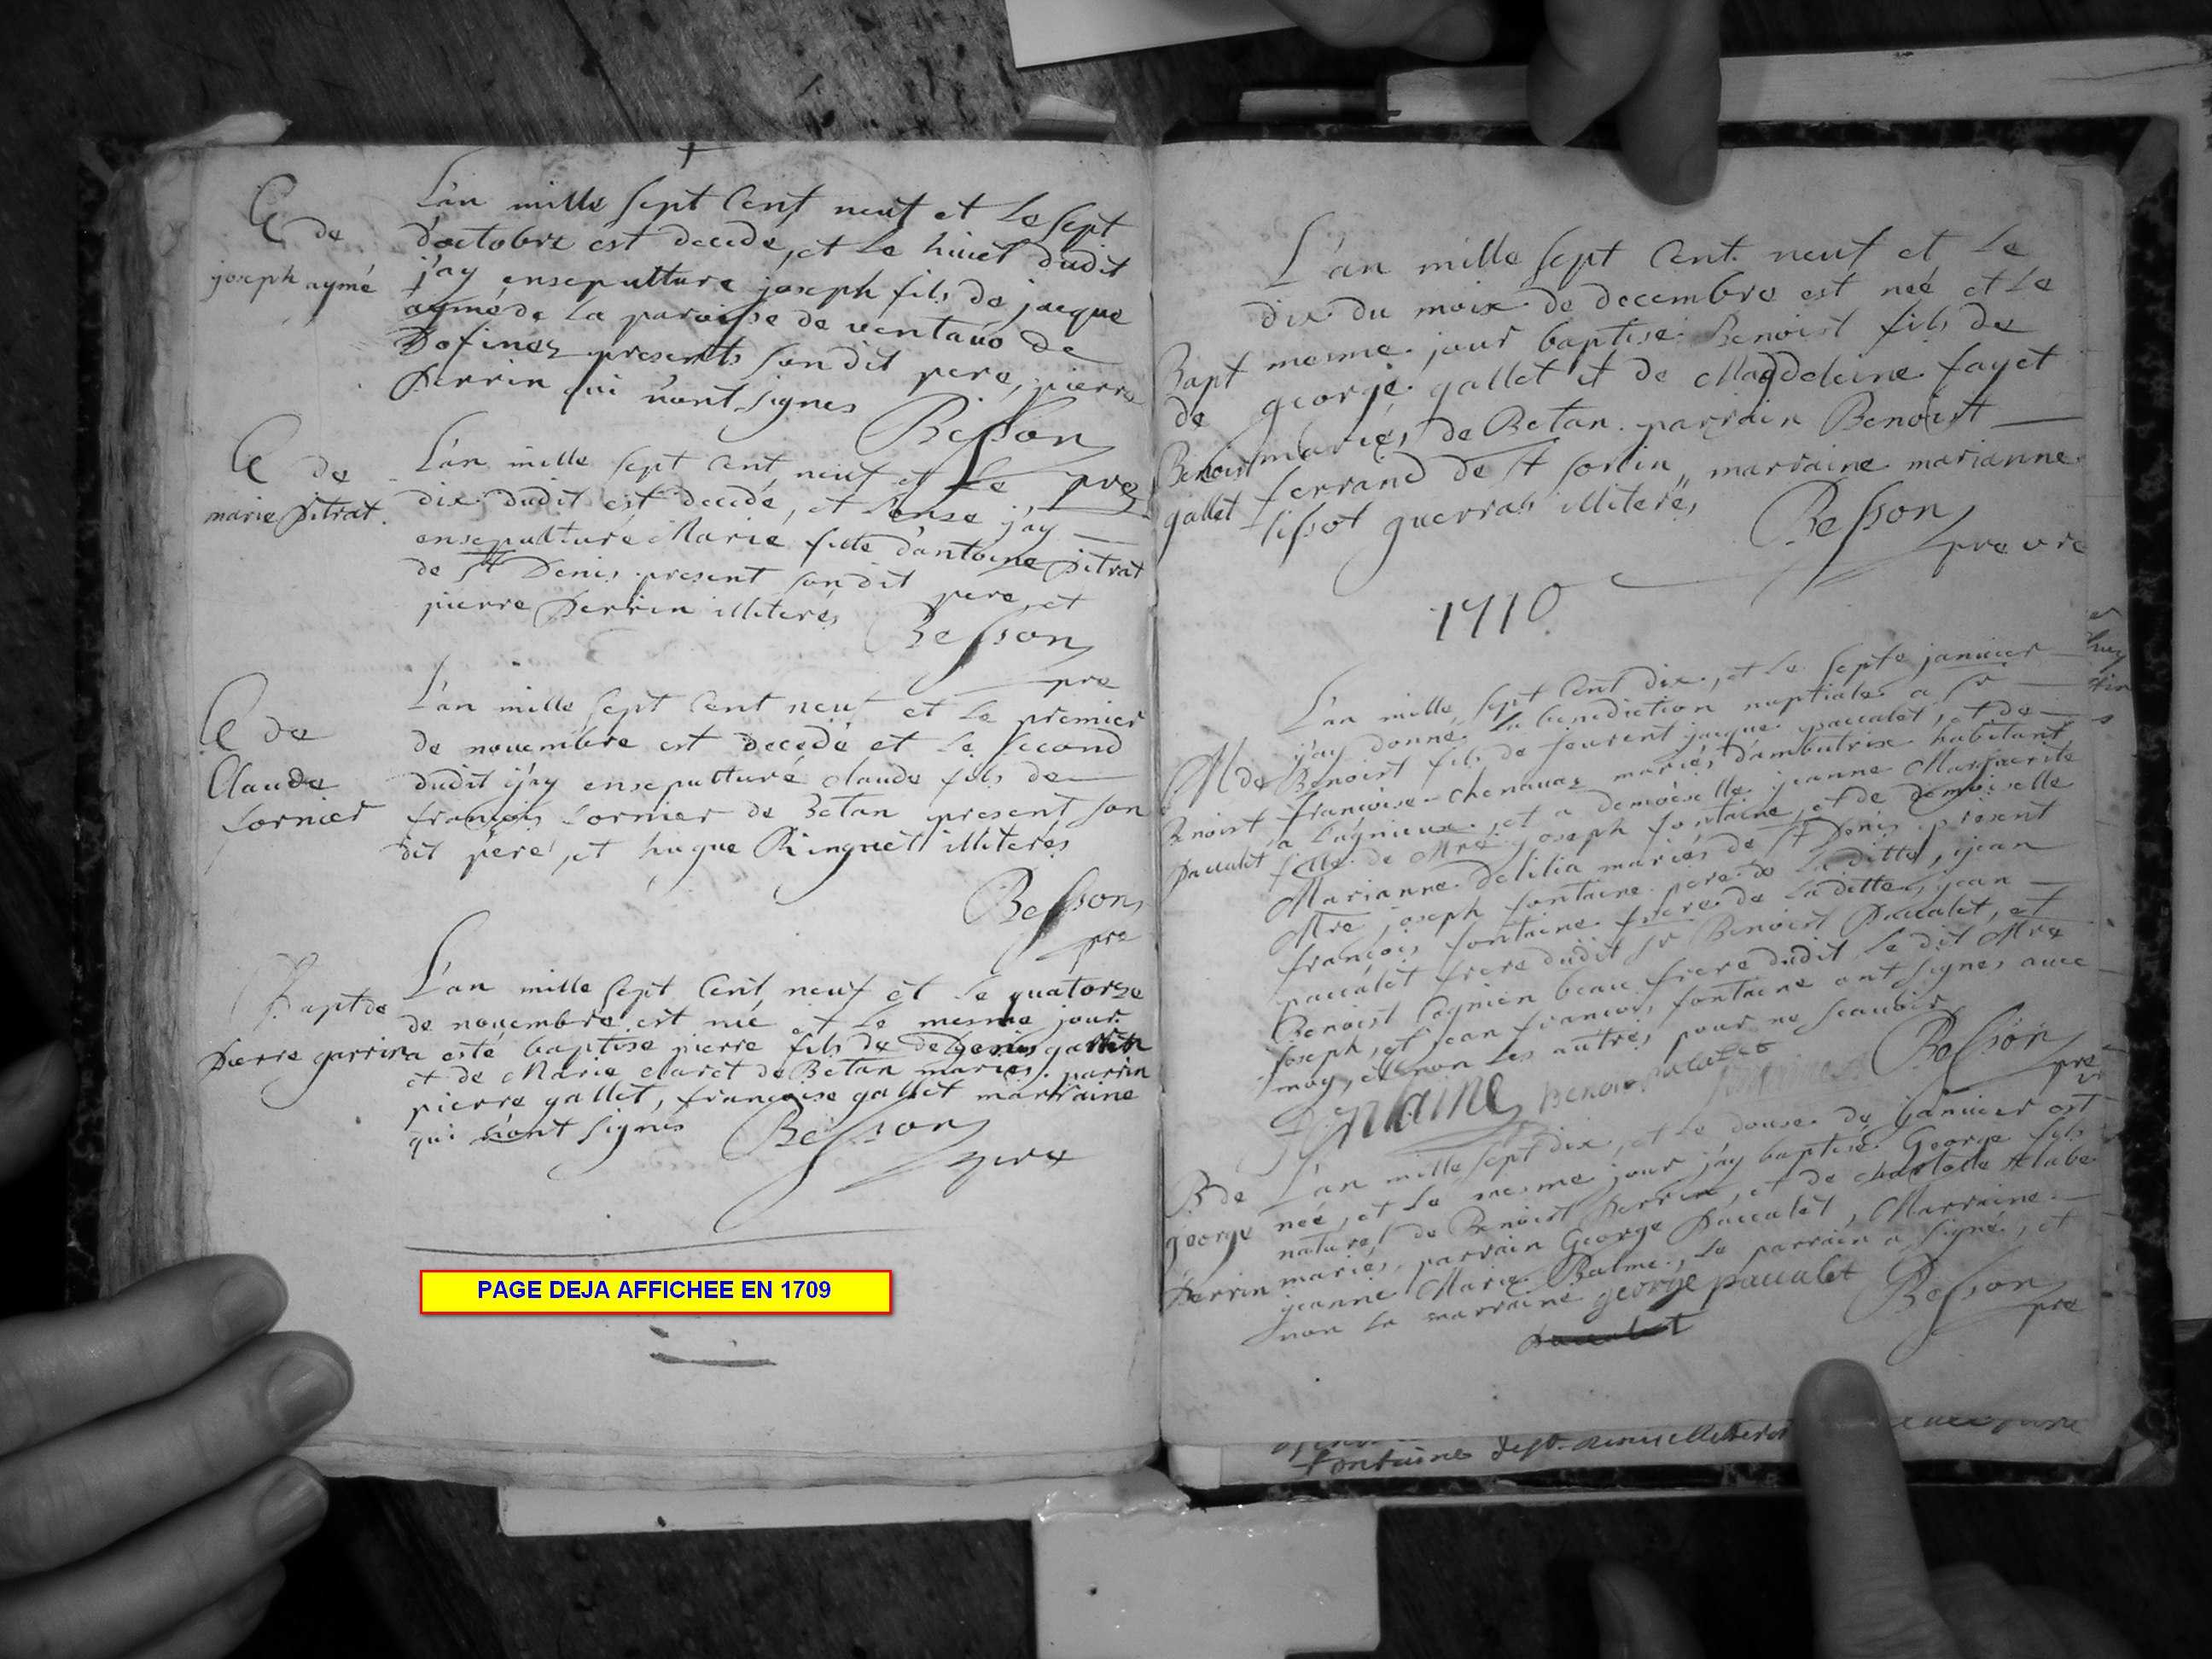 L'an mille sept Cent neuf et le sept
d'octobre est decede, et le huict dudit
j'ay ensepulturé joseph fils de jacque
aymé de la paroisse de
Dofinez presents son dit pere, pierre
perrin qui n'ont signes
Besson
pre
C de
joseph aymé
L'an mille sept Cent neuf et le
dix dudit est decedé, et l'onse j'ay
ensepulturé Marie fille d'antoine pitrat
de St Denis present son dit pere et
pierre perrin illiterés
Besson
pre
C de
marie pitrat.
L'an mille sept Cent neuf et le premier
de novembre est decedé et le second
dudit j'ay ensepulturé claude fils de
françois Cornier de Betan present son
dit pere, et hugue Ringuet illiterés
Besson
pre
C de
Claude
Cornier
L'an mille sept Cent neuf et le quatorze
de novembre est né et le mesme jour
a esté baptisé pierre fils de de denis garrin
et de Marie claret de Betan mariés, parrin
pierre gallet, françoise gallet marraine
qui n'ont signés Besson
pre
Bapt de
pierre garrin
PAGE DEJA AFFICHEE EN 1709
L'an mille sept Cent neuf et le
dix du moix de decembre est né et le
mesme jour baptisé Benoist fils de
george gallet et de Magdeleine fayet
mariés de Betan parrain Benoist
ferrand de St sorlin, marraine marianne
tissot guerras illiterés
Besson
preure
Bapt
de
Benoist
gallet
1710
L'an mille sept Cent dix, et le sept janvier
j'ay donné la benediction nuptiale a sr
Benoist fils de jacque paccalet, et de
françoise chenavaz mariés d'ambutrix habitant
a Lagnieux, et a demoiselle jeanne Marguerite
fille de Mre joseph fontaine, et de demoiselle
Marianne Delilia mariés de St Denis present
Mre joseph fontaine pere de laditte, jean
françois fontaine frere de laditte, jean
paccalet frere dudit sr Benoist paccalet, et
Benoist Cognien beau frere dudit le dit Mre
joseph, et jean françois fontaine ont signés avec
moy, et non les autres pour ne scavoir
fontaine Benoist paccalet Besson
pre
M de
Benoist
paccalet
L'an mille sept dix, et le douse de janvier est
né, et le mesme jour j'ay baptisé George fils
naturel de Benoist perrin, et de charlotte
mariés, parrain George paccalet, Marraine
jeanne Marie Balme, le parrain a signé, et
non la marraine george paccalet Besson
pre
B de
george
perrin
paccalet
fontaine